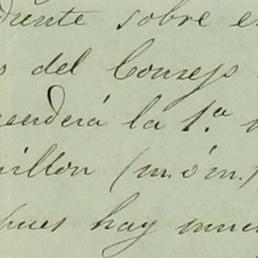 diente sobre e
s del Consejo
enderá la 1.ª
illon (m. ó m.)
pues hay muc